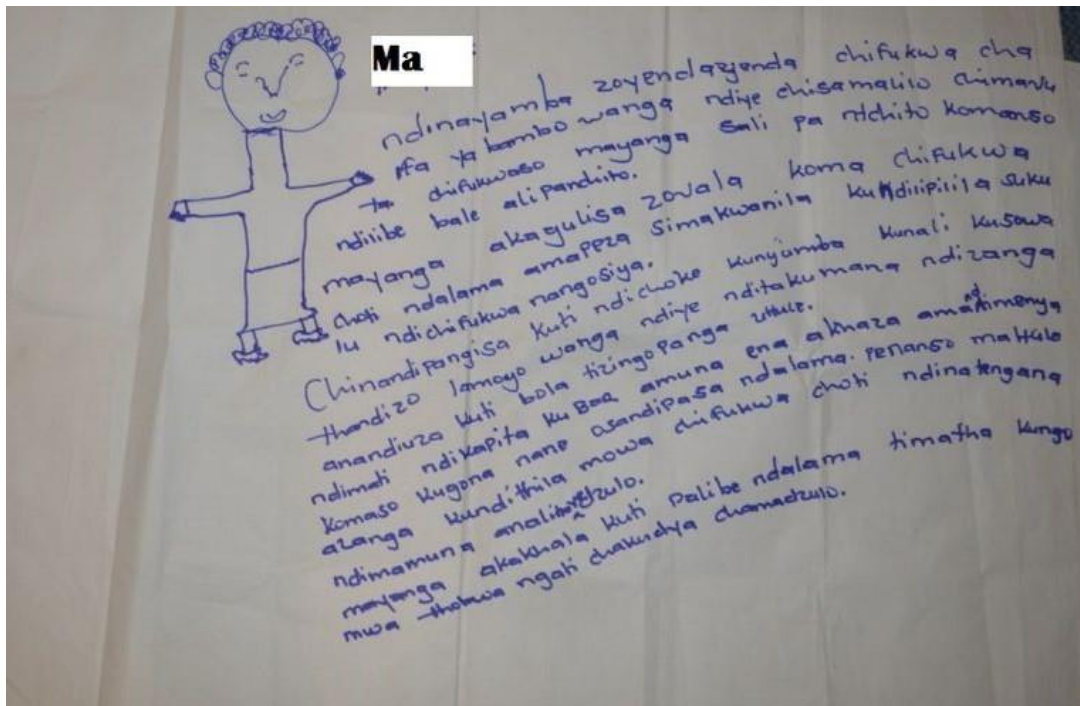 Ma
ndinayamba zoyendayenda chifukwa cha
nfa ya bambo wanga ndiye chisamalilo chimavu
ta chifukwaso mayanga sali pa ntchito komanso
ndilibe bale alipanchito.
mayanga akagulisa zovala koma chifukwa
choti ndalama amapeza simakwanila kundilipilila suku
lu ndichifukwa nangosiya.
Chinandipangisa kuti ndichoke kunyumba kunali kusowa
thandizo lamoyo wanga ndiye nditakumana ndizanga
anandiuza kuti bola tizingopanga uhule.
ndimati ndikapita ku Baa amuna ena akhaza amandimenya
komaso kugona nane osandipasa ndalama. penanso mahule
azanga kundithila mowa chifukwa choti ndinatengana
ndimamuna analinayedzulo.
mayanga akakhala kuti palibe ndalama timatha kungo
mwa thobwa ngati chakudya chamadzulo.